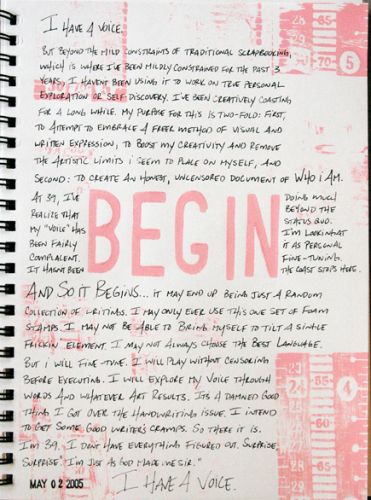 I HAVE A VOICE.
BUT BEYOND THE MILD CONSTRAINTS OF TRADITIONAL SCRAPBOOKING,
WHICH IS WHERE I'VE BEEN MILDLY CONSTRAINED FOR THE PAST 3
YEARS, I HAVEN'T BEEN USING IT TO WORK ON TRUE PERSONAL
EXPLORATION OR SELF DISCOVERY. I'VE BEEN CREATIVELY COASTING
FOR A LONG WHILE. MY PURPOSE FOR THIS IS TWO-FOLD: FIRST,
TO ATTEMPT TO EMBRACE A FREER METHOD OF VISUAL AND
WRITTEN EXPRESSION, TO BOOST MY CREATIVITY AND REMOVE
THE ARTISTIC LIMITS I SEEM TO PLACE ON MYSELF, AND
SECOND: TO CREATE AN HONEST, UNCENSORED DOCUMENT OF WHO I AM.
AT 39, I'VE
REALIZE THAT
MY "VOICE" HAS
BEEN FAIRLY
COMPLACENT.
IT HASN'T BEEN
BEGIN
DOING MUCH
BEYOND THE
STATUS QUO.
I'M LOOKIN AT
IT AS PERSONAL
FINE-TUNING.
THE COAST STOPS HERE.
AND SO IT BEGINS... IT MAY END UP BEING JUST A RANDOM
COLLECTION OF WRITINGS. I MAY ONLY EVER USE THIS ONE SET OF FOAM
STAMPS. I MAY NOT BE ABLE TO BRING MYSELF TO TILT A SINGLE
FRICKIN' ELEMENT. I MAY NOT ALWAYS CHOOSE THE BEST LANGUAGE.
BUT I WILL FINE-TUNE. I WILL PLAY WITHOUT CENSORING
BEFORE EXECUTING. I WILL EXPLORE MY VOICE THROUGH
WORDS AND WHATEVER ART RESULTS. ITS A DAMNED GOOD
THING I GOT OVER THE HANDWRITING ISSUE. I INTEND
TO GET SOME GOOD WRITER'S CRAMPS. SO THERE IT IS.
I'M 39. I DON'T HAVE EVERYTHING FIGURED OUT. SURPRISE,
SURPRISE. "I'M JUST AS GOD MADE ME SIR."
MAY 02 2005
I HAVE A VOICE.
85
80
70
5
4